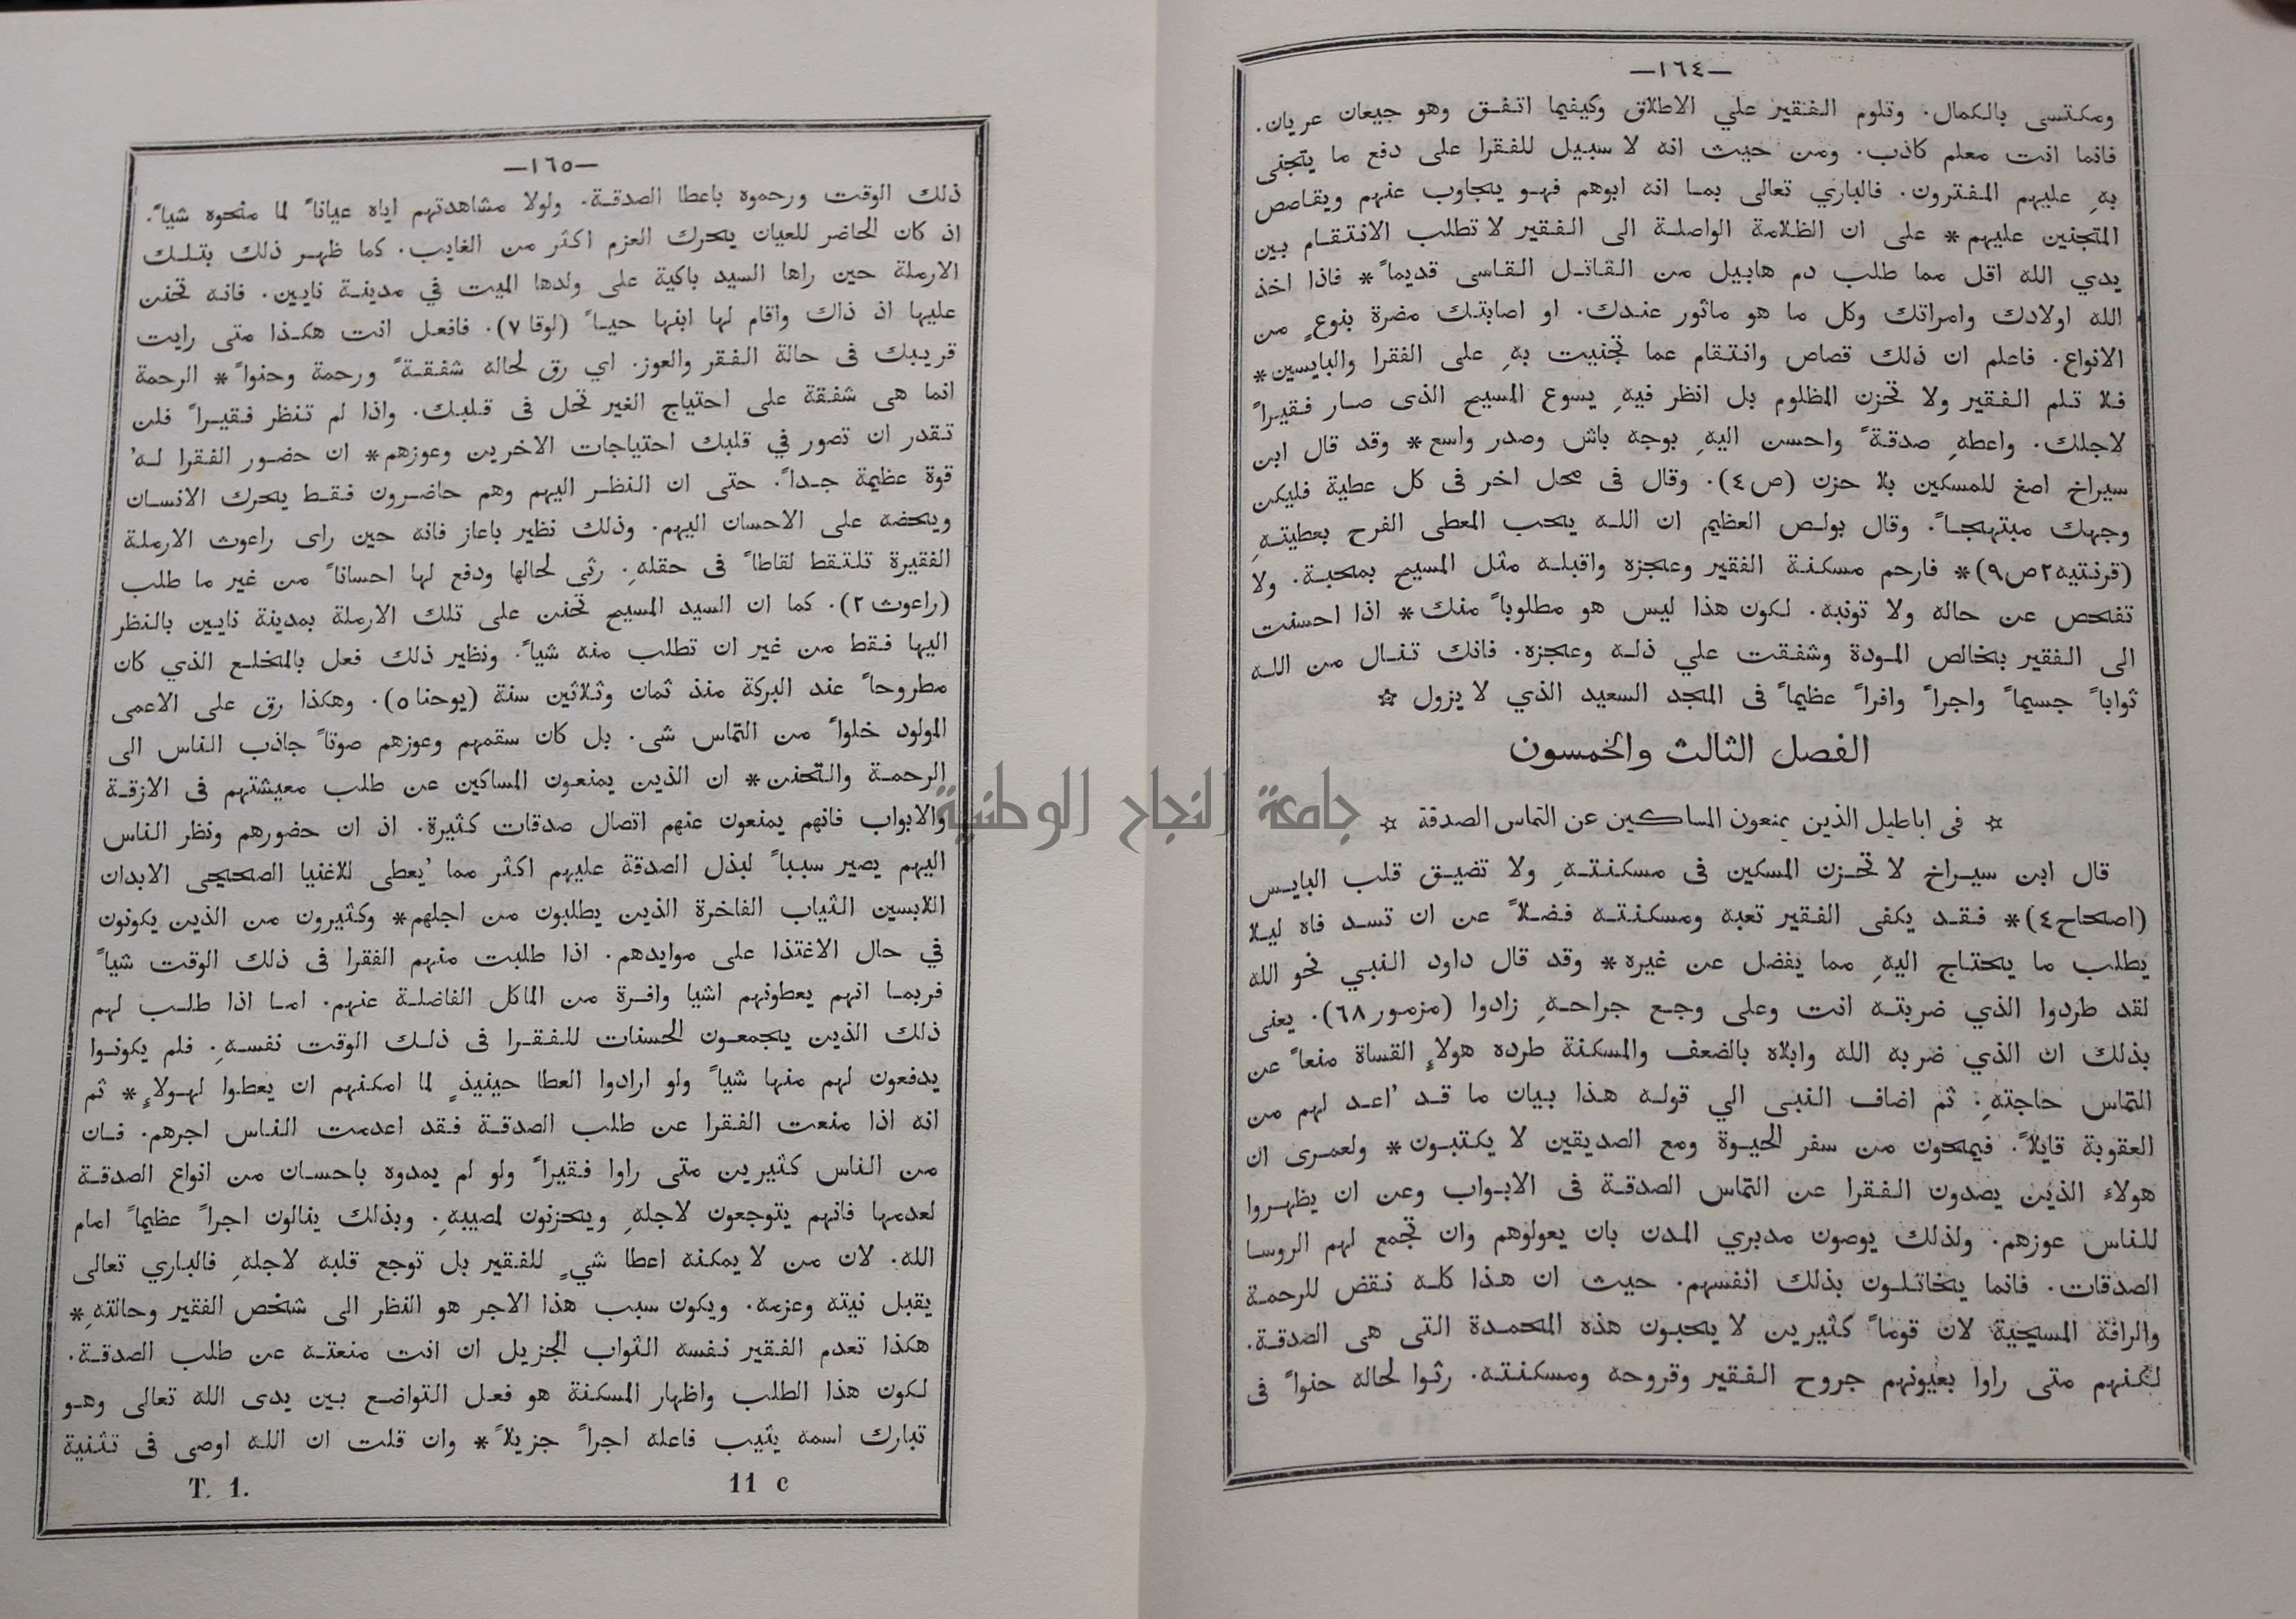 —١٦٤—
ومكتسى بالكمال. وتلوم الفقير علي الاطلاق وكيفيما اتفق وهو جيعان عريان.
فانما انت معلم كاذب. ومن حيث انه لا سبيل للفقرا على دفع ما يتجنى
بهِ عليهم المفترون. فالباري تعالى بما انه ابوهم فهو يجاوب عنهم ويقاصص
المتجنين عليهم* على ان الظلامة الواصلة الى الفقير لا تطلب الانتقام بين
يدي الله اقل مما طلب دم هابيل من القاتل القاسى قديماً* فاذا اخذ
الله اولادك وامراتك وكل ما هو ماثور عندك. او اصابتك مضرة بنوعٍ من
الانواع. فاعلم ان ذلك قصاص وانتقام عما تجنيت بهِ على الفقرا والبايسين*
فلا تلم الفقير ولا تحزن المظلوم بل انظر فيهِ يسوع المسيح الذى صار فقيراً
لاجلك. واعطهِ صدقةً واحسن اليهِ بوجه باش وصدر واسع* وقد قال ابن
سيراخ اصغ للمسكين بلا حزن (ص٤). وقال فى محل اخر فى كل عطية فليكن
وجهك مبتهجاً. وقال بولص العظيم ان الله يحب المعطى الفرح بعطيتهِ
(قرنتيه٢ص٩)* فارحم مسكنة الفقير وعجزه واقبله مثل المسيح بمحبة. ولا
تفحص عن حاله ولا تونبه. لكون هذا ليس هو مطلوباً منك* اذا احسنت
الى الفقير بخالص المودة وشفقت علي ذله وعجزه. فانك تنال من الله
ثواباً جسيماً واجراً وافراً عظيماً فى المجد السعيد الذي لا يزول ☆
الفصل الثالث والخمسون
☆ فى اباطيل الذين يمنعون المساكين عن التماس الصدقة ☆
قال ابن سيراخ لا تحزن المسكين فى مسكنتهِ ولا تضيق قلب البايس
(اصحاح٤)* فقد يكفى الفقير تعبه ومسكنته فضلاً عن ان تسد فاه ليلا
يطلب ما يحتاج اليهِ مما يفضل عن غيره* وقد قال داود النبي نحو الله
لقد طردوا الذي ضربته انت وعلى وجع جراحهِ زادوا (مزمور٦٨). يعنى
بذلك ان الذي ضربه الله وابلاه بالضعف والمسكنة طرده هولاءِ القساة منعاً عن
التماس حاجتهِ. ثم اضاف النبى الي قوله هذا بيان ما قد اُعد لهم من
العقوبة قايلاً. فيمحون من سفر الحيوة ومع الصديقين لا يكتبون* ولعمرى ان
هولاء الذين يصدون الفقرا عن التماس الصدقة فى الابواب وعن ان يظهروا
للناس عوزهم. ولذلك يوصون مدبري المدن بان يعولوهم وان تجمع لهم الروسا
الصدقات. فانما يخاتلون بذلك انفسهم. حيث ان هذا كله نقض للرحمة
والرافة المسيحية لان قوماً كثيرين لا يحبون هذه المحمدة التى هى الصدقة.
لكنهم متى راوا بعيونهم جروح الفقير وقروحه ومسكنته. رثوا لحاله حنواً فى
—١٦٥—
ذلك الوقت ورحموه باعطا الصدقة. ولولا مشاهدتهم اياه عياناً لما منحوه شياً.
اذ كان الحاضر للعيان يحرك العزم اكثر من الغايب. كما ظهر ذلك بتلك
الارملة حين راها السيد باكية على ولدها الميت في مدينة نايين. فانه تحنن
عليها اذ ذاك واقام لها ابنها حياً (لوقا ٧). فافعل انت هكذا متى رايت
قريبك فى حالة الفقر والعوز. اي رق لحاله شفقةً ورحمة وحنواً* الرحمة
انما هى شفقة على احتياج الغير تحل فى قلبك. واذا لم تنظر فقيراً فلن
تقدر ان تصور في قلبك احتياجات الاخرين وعوزهم* ان حضور الفقرا لهُ
قوة عظيمة جداً. حتى ان النظر اليهم وهم حاضرون فقط يحرك الانسان
ويحضه على الاحسان اليهم. وذلك نظير باعاز فانه حين راى راعوث الارملة
الفقيرة تلتقط لقاطاً فى حقلهِ. رثى لحالها ودفع لها احساناً من غير ما طلب
(راعوث ٢). كما ان السيد المسيح تحنن على تلك الارملة بمدينة نايين بالنظر
اليها فقط من غير ان تطلب منه شياً. ونظير ذلك فعل بالمخلع الذي كان
مطروحاً عند البركة منذ ثمان وثلاثين سنة (يوحنا ٥). وهكذا رق على الاعمى
المولود خلواً من التماس شى. بل كان سقمهم وعوزهم صوتاً جاذب الناس الى
الرحمة والتحنن* ان الذين يمنعون المساكين عن طلب معيشتهم فى الازقة
والابواب فانهم يمنعون عنهم اتصال صدقات كثيرة. اذ ان حضورهم ونظر الناس
اليهم يصير سبباً لبذل الصدقة عليهم اكثر مما يُعطى للاغنيا الصحيحى الابدان
اللابسين الثياب الفاخرة الذين يطلبون من اجلهم* وكثيرون من الذين يكونون
في حال الاغتذا على موايدهم. اذا طلبت منهم الفقرا فى ذلك الوقت شياً
فربما انهم يعطونهم اشيا وافرة من الماكل الفاضلة عنهم. اما اذا طلب لهم
ذلك الذين يجمعون الحسنات للفقرا فى ذلك الوقت نفسهِ. فلم يكونوا
يدفعون لهم منها شياً ولو ارادوا العطا حينيذٍ لما امكنهم ان يعطوا لهولاءِ* ثم
انه اذا منعت الفقرا عن طلب الصدقة فقد اعدمت الناس اجرهم. فان
من الناس كثيرين متى راوا فقيراً ولو لم يمدوه باحسان من انواع الصدقة
لعدمها فانهم يتوجعون لاجلهِ ويحزنون لمصيبهِ. وبذلك ينالون اجراً عظيماً امام
الله. لان من لا يمكنه اعطا شيٍ للفقير بل توجع قلبه لاجلهِ فالباري تعالى
يقبل نيته وعزمه. ويكون سبب هذا الاجر هو النظر الى شخص الفقير وحالتهِ*
هكذا تعدم الفقير نفسه الثواب الجزيل ان انت منعته عن طلب الصدقة.
لكون هذا الطلب واظهار المسكنة هو فعل التواضع بين يدى الله تعالى وهو
تبارك اسمه يثيب فاعله اجراً جزيلاً* وان قلت ان الله اوصى فى تثنية
T. 1. 11 c
جامعة النجاح الوطنية